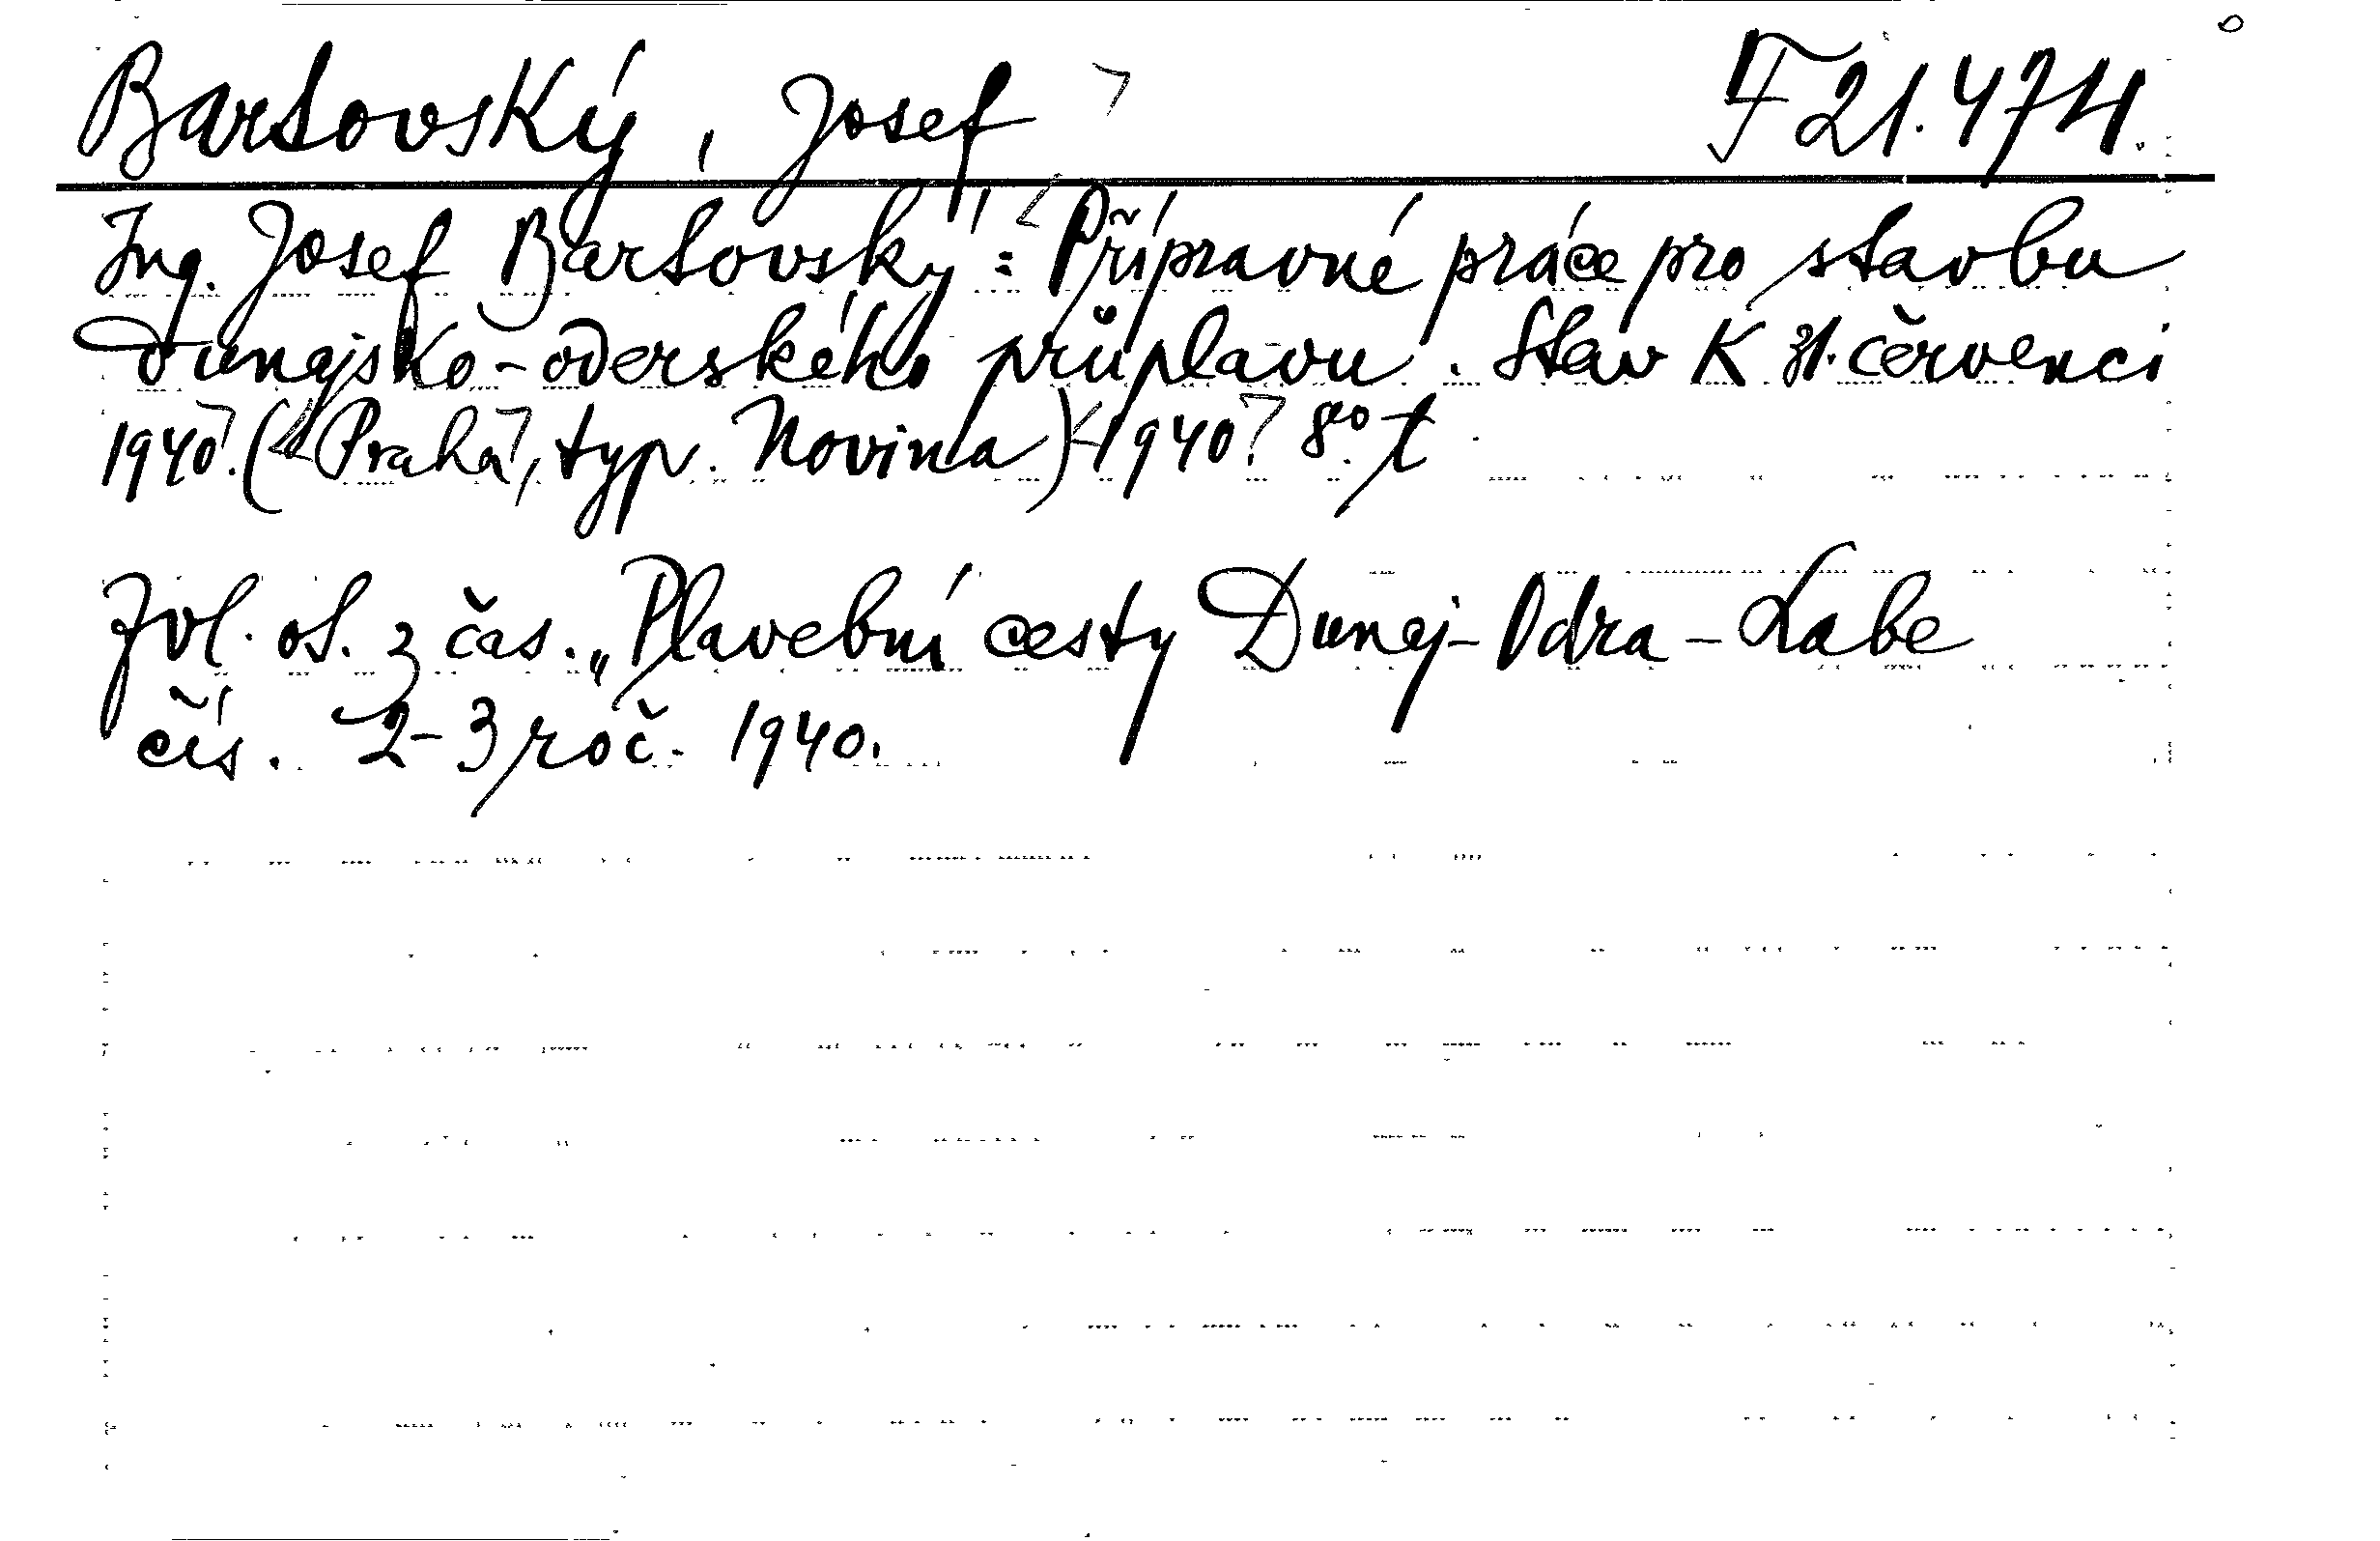 Bartovský, Josef F 21.474.
Ing. Josef Bartovský: Přípravné práce pro stavbu
Dunajsko-oderského průplavu. Stav k 31. červenci
1940. (Praha, typ. Novina) 1940. 8º.
Zvl. ot. z čas. „Plavební cesty Dunaj-Odra-Labe
čís. 2-3 roč. 1940.